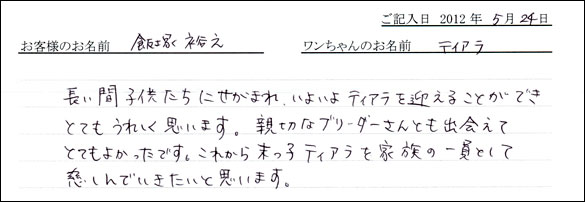 ご記入日 2012 年 5 月 24 日
お客様のお名前 飯塚 裕之 ワンちゃんのお名前 ティアラ
長い間子供たちにせがまれ、いよいよティアラを迎えることができ
とてもうれしく思います。親切なブリーダーさんとも出会えて
とてもよかったです。これから末っ子ティアラを家族の一員として
慈しんでいきたいと思います。